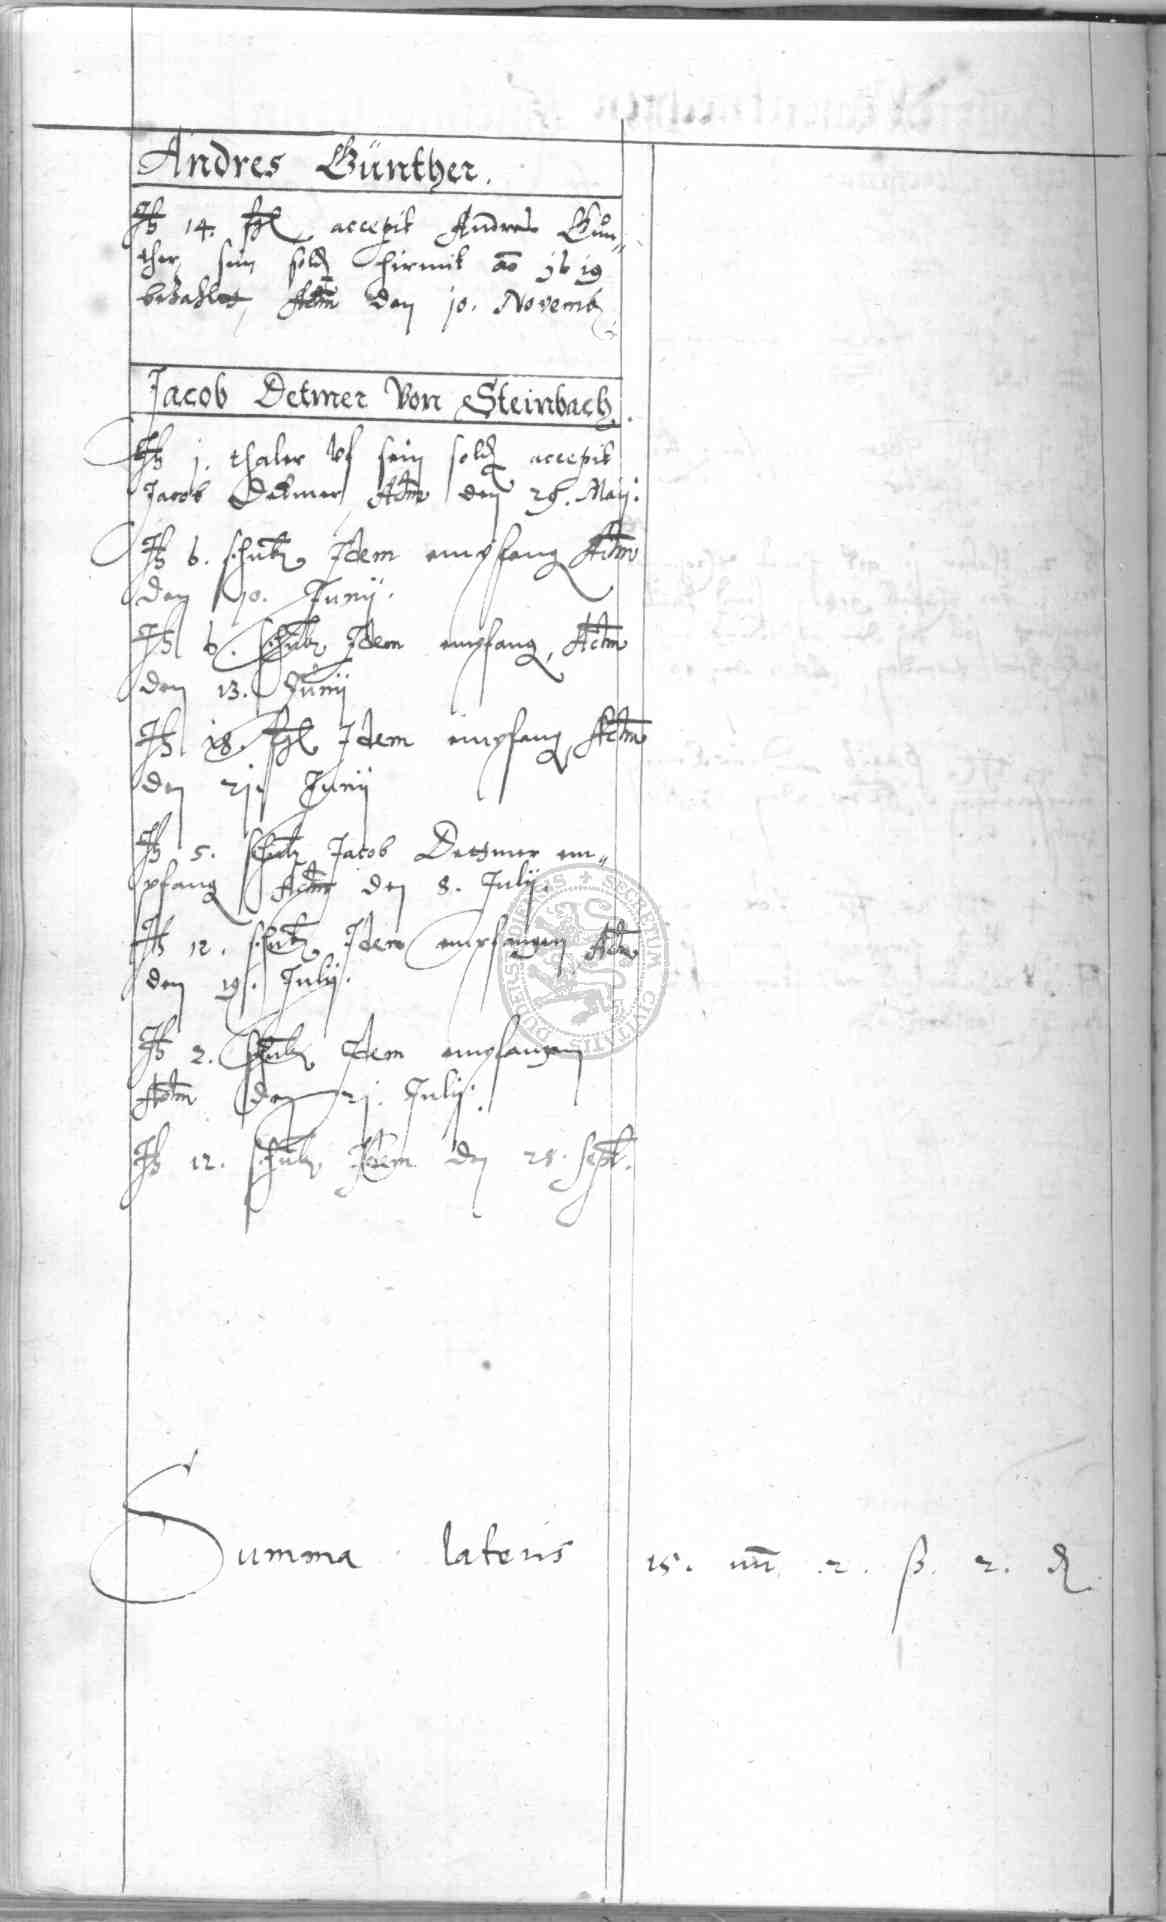 Andres Günther.
It 14. ßgl accepit Andreas Gün„
ther, sein soldt hirmit ao 1619
bezahlet, Actm den 10. Novemb
Jacob Detmer Von Steinbach.
It 1. thaler vf sein soldt accepit
Jacob Detmer Actm den 28. Maij.
It 6. schnb Idem empfang Actm
den 10. Junij.
It 6. schnb Idem empfang, Actm
den 13. Junij
It 18. ßgl Idem empfang, Actm
den 21. Junij
It 5. schnb Jacob Detmer em„
pfang Actm den 8. Julij.
It 12. schnb Idem empfangen Actm
den 19. Julij.
It 2. schnb Idem empfangen
Actm den 21. Julij.
It 12. schnb Idem den 28. Sept.
DUDERSTADIENSIS + SECRETUM CIVITATIS
Summa lateris 15. mr. 2. ß. 2. d